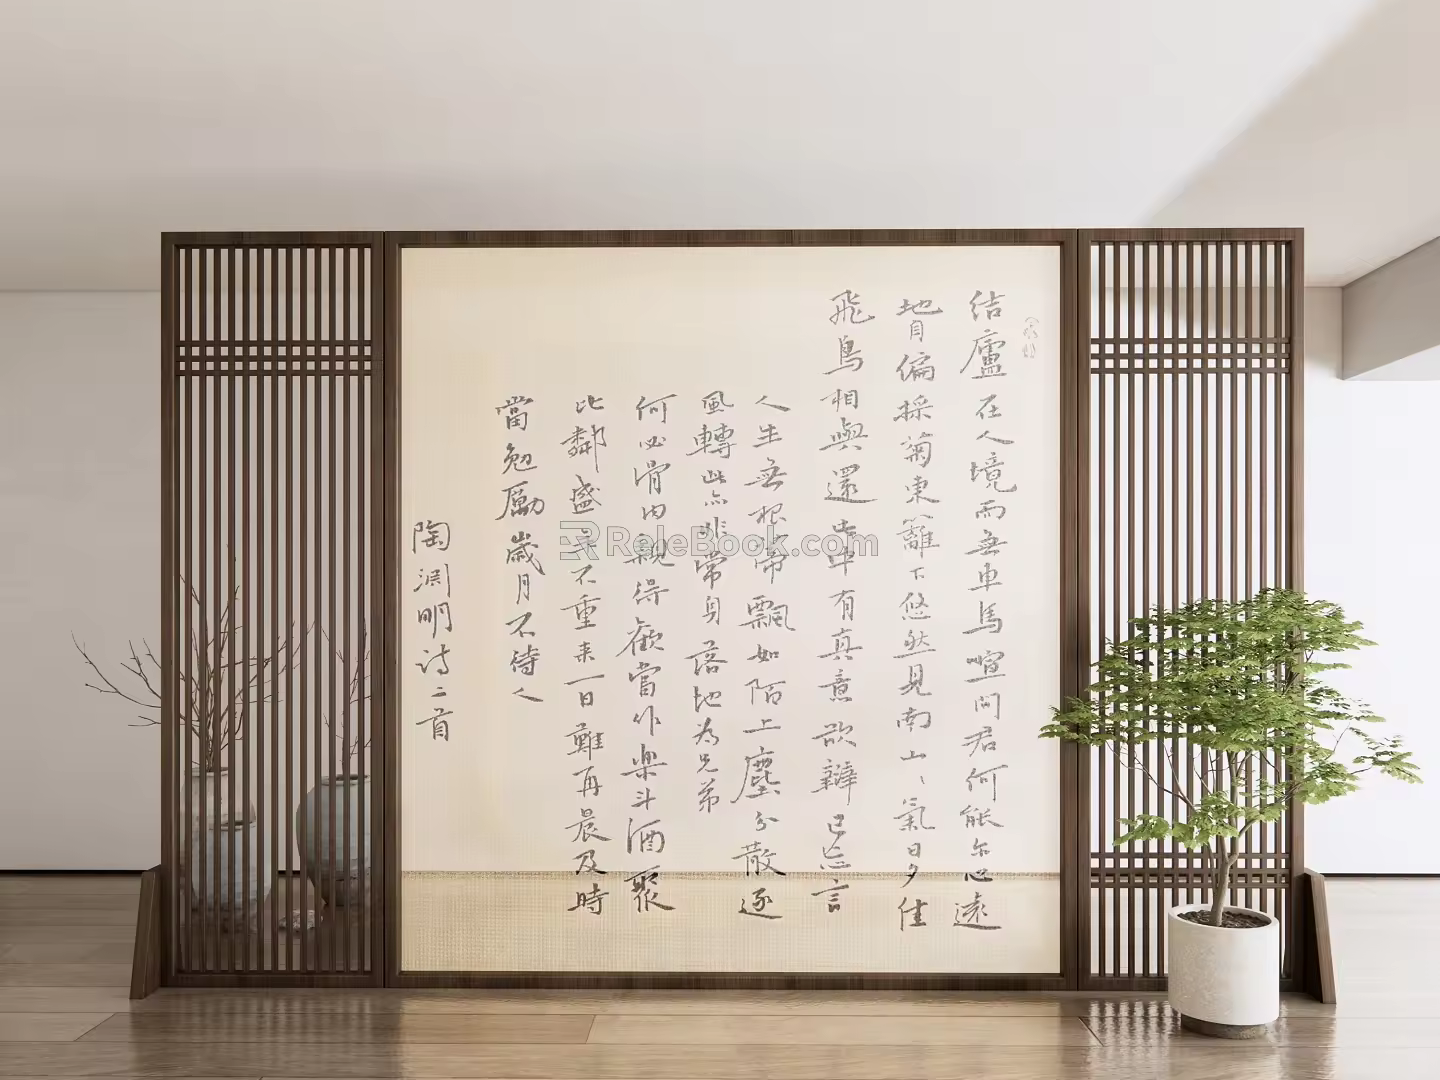 结廬在人境而無車馬喧问君何能尔心遠
地自偏採菊東籬下悠然見南山、氣日夕佳
飛鳥相與還此中有真意欲辯已忘言
人生無根蒂飄如陌上塵分散逐
風轉此亦非常身落地為兄弟
何必骨肉親得歡當作楽斗酒聚
比鄰盛年不重来一日難再晨及時
當勉勵歲月不待人
陶渊明诗二首
ReleBook.com